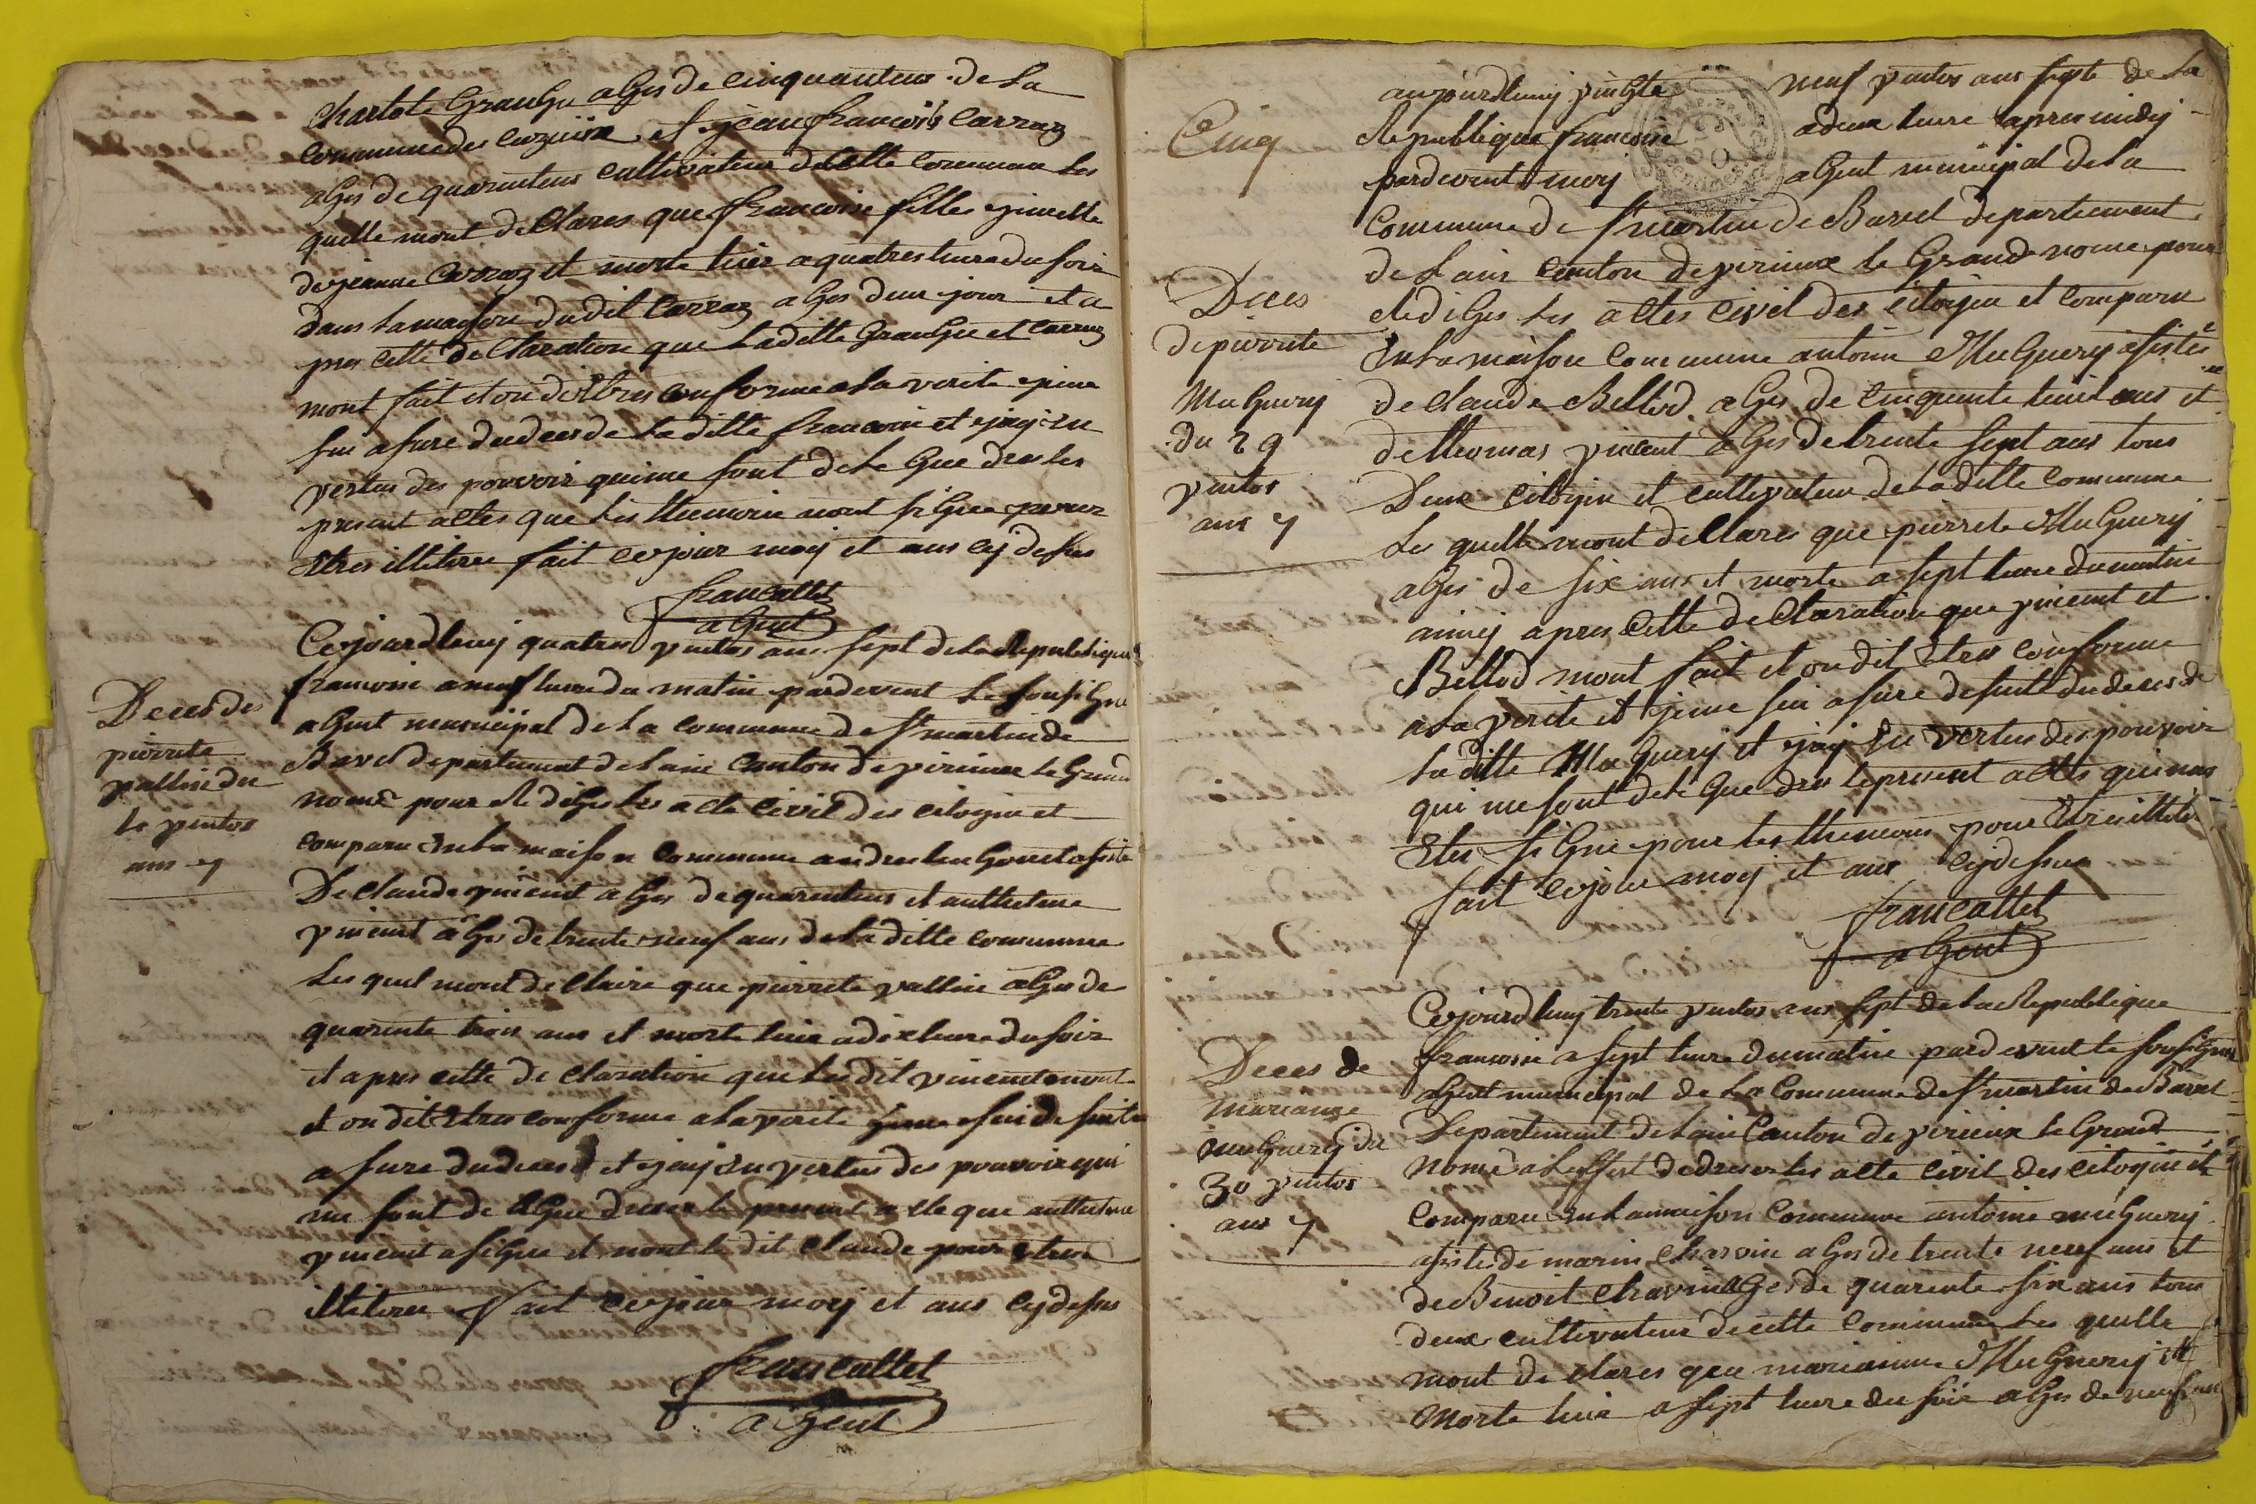 Charlote Grangie ages de cinquanteun de la
commune des Cuzieux et jean francois Carraz
ages de quaranteun cultivateur de cette commune les
quelle mont declares que francoise filles gimelle
de jeanne Carraz et morte hier a quatres heure du soir
dans la maison du dit Carraz ages deux jour et a
pres cette declaration que la ditte Grangie et Carraz
mont fait et on dit Etres conforme a la verite je me
sui asure du deces de la ditte francoise et jay en
vertus des pouvoir qui me sont delegue dres les
present actes que les themoin nont signe pour
Etres illitere fait ce jour moy et ans cy dessus
francallet
agent
Deces de
pierrete
vallin du
4 ventos
ans 7
Cejourdhuy quatres ventos ans sept de la Republique
francoise a neuf heure du matin pardevent le sousigne
agent municipal de la commune de St martin de
Bavel departement de lain Canton de virieux le Grand
nomé pour Rediges les acte civil des citoyin et
comparu en la maison commune andre hugonet asisté
De claude vincent ages de quaranteun et anthelme
vincent ages de trente neuf ans de la ditte commune
les quel mont declaire que pierrete vallin ages de
quarente trois ans et morte hier a dix heure du soir
et apres cette declaration que les dit vincent mont
et on dit Etres conforme a la verite je me sui de suite
asure du deces et jay en vertus des pouvoir qui
me sont delegue dresse le present acte que anthelme
vincent a signe et nont le dit claude pour etres
illitere fait ce jour moy et ans cy dessus
francallet
agent
Cinq
aujourdhuy vingte neuf ventos ans sept de la
Republique francoise a deux heure apres midy
pardevent moy agent municipal de la
Commune de St martin de Bavel departement
de lain Canton de virieux le Grand nome pour
Rediges les actes civil des citoyin et comparu
Deces
de pierrete
Muguery
du 29
ventos
ans 7
En la maison commune antoine Muguery asistés
de claude Bellod ages de cinquente huit ans et
de thomas vincent ages de trente sept ans tous
Deux citoyin et cultivateur de la ditte commune
les quelle mont declares que pierrete Muguery
ages de six ans et morte a sept heure du matin
apres cette declaration que vincent et
Bellod mont fait et on dit Etres conforme
a la verite et je me sui asure de suite du deces de
la ditte Muguery et jay En vertus des pouvoir
qui me sont delegue dres le present actes qui nas
Etes signe pour les themoin pour Etre illitere
fait ce jour moy et ans cy dessus
francallet
agent
Deces de
marianne
muguery du
30 ventos
ans 7
Cejourdhuy trente ventos ans sept de la Republique
francoise a sept heure du matin pardevent le sousigne
agent municipal de la Commune de St martin de Bavel
Departement de lain Canton de virieux le Grand
nomé a leffet de dreser les acte civil des citoyin et
comparu en la maison Commune antoine muguery
asiste de marin Charvin ages de trente neuf ans et
de Benoit Charvin ages de quarente six ans tous
deux cultivateur de cette commune les quelle
mont declares que marianne Muguery et
morte hier a sept heure du soir ages de neuf ans